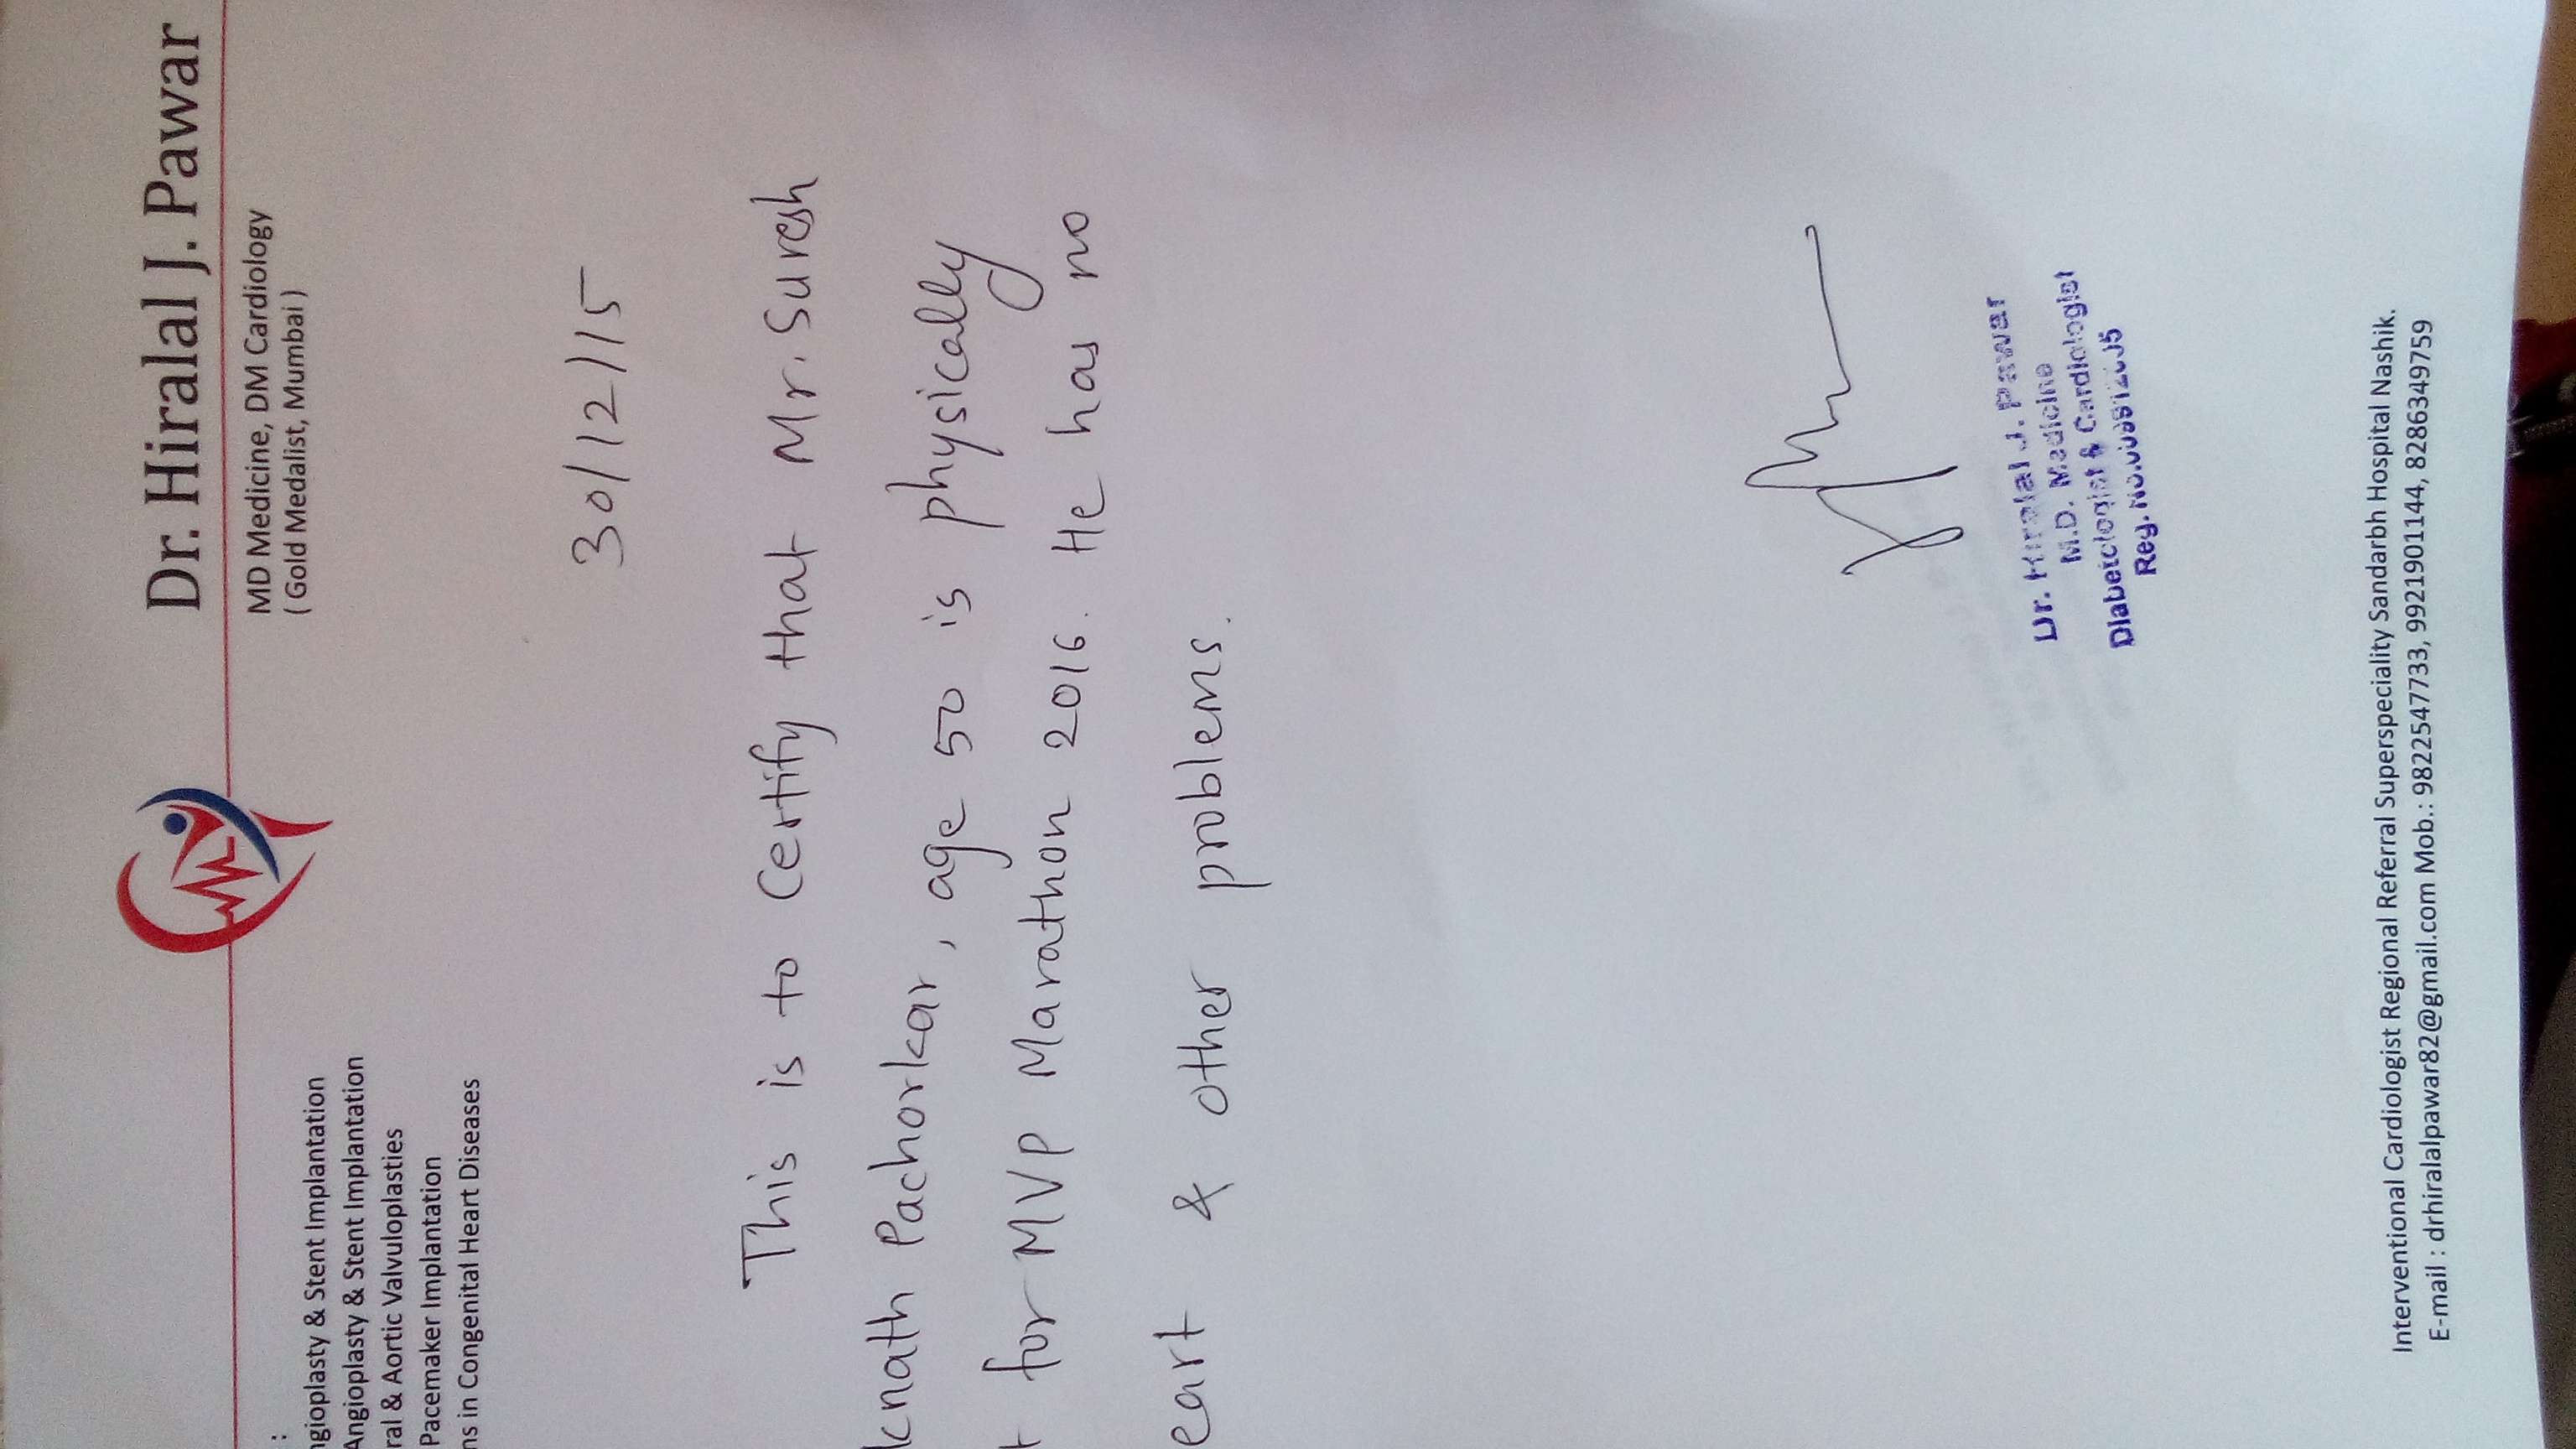 Dr. Hiralal J. Pawar
MD Medicine, DM Cardiology
( Gold Medalist, Mumbai )
:
ngioplasty & Stent Implantation
Angioplasty & Stent Implantation
ral & Aortic Valvuloplasties
Pacemaker Implantation
ns in Congenital Heart Diseases
30/12/15
This is to Certify that Mr. Suresh
knath Pachorkar, age 50 is physically
t for MVP Marathon 2016. He has no
eart & other problems.
Dr. Hiralal J. Pawar
M.D. Medicine
Diabetologist & Cardiologist
Reg. No.
Interventional Cardiologist Regional Referral Superspeciality Sandarbh Hospital Nashik.
E-mail : drhiralalpawar82@gmail.com Mob.: 9822547733, 9921901144, 8286349759